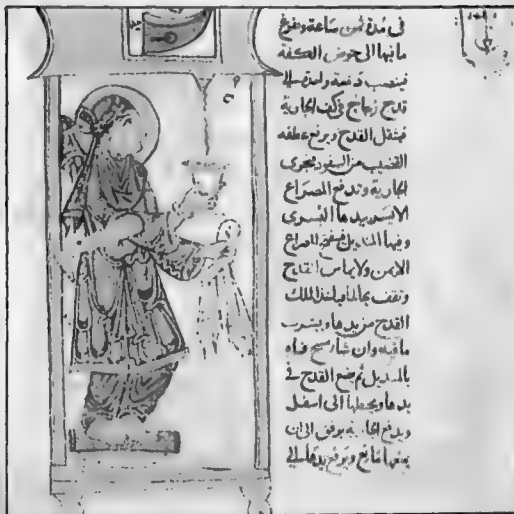 في مدة ثمن ساعة ويفرغ
ما فيها الى حوض الكفة
فينصب دفعة واحدة الى
قدح زجاج في كف الجارية
فيثقل القدح ويرتفع
القضيب عن السفود فتجرى
الجارية وتدفع المصراع
الايسر بيدها اليسرى
وفيها المنديل فينفتح المصراع
الايمن ولا يماس القدح
وتقف بحالها فياخذ الملك
القدح من يدها ويشرب
ما فيه وان شا مسح فاه
بالمنديل ثم يضع القدح في
يدها ويحطها الى اسفل
ويدفع الجارية برفق الى ان
يمنعها مانع ويرفع يدها الى